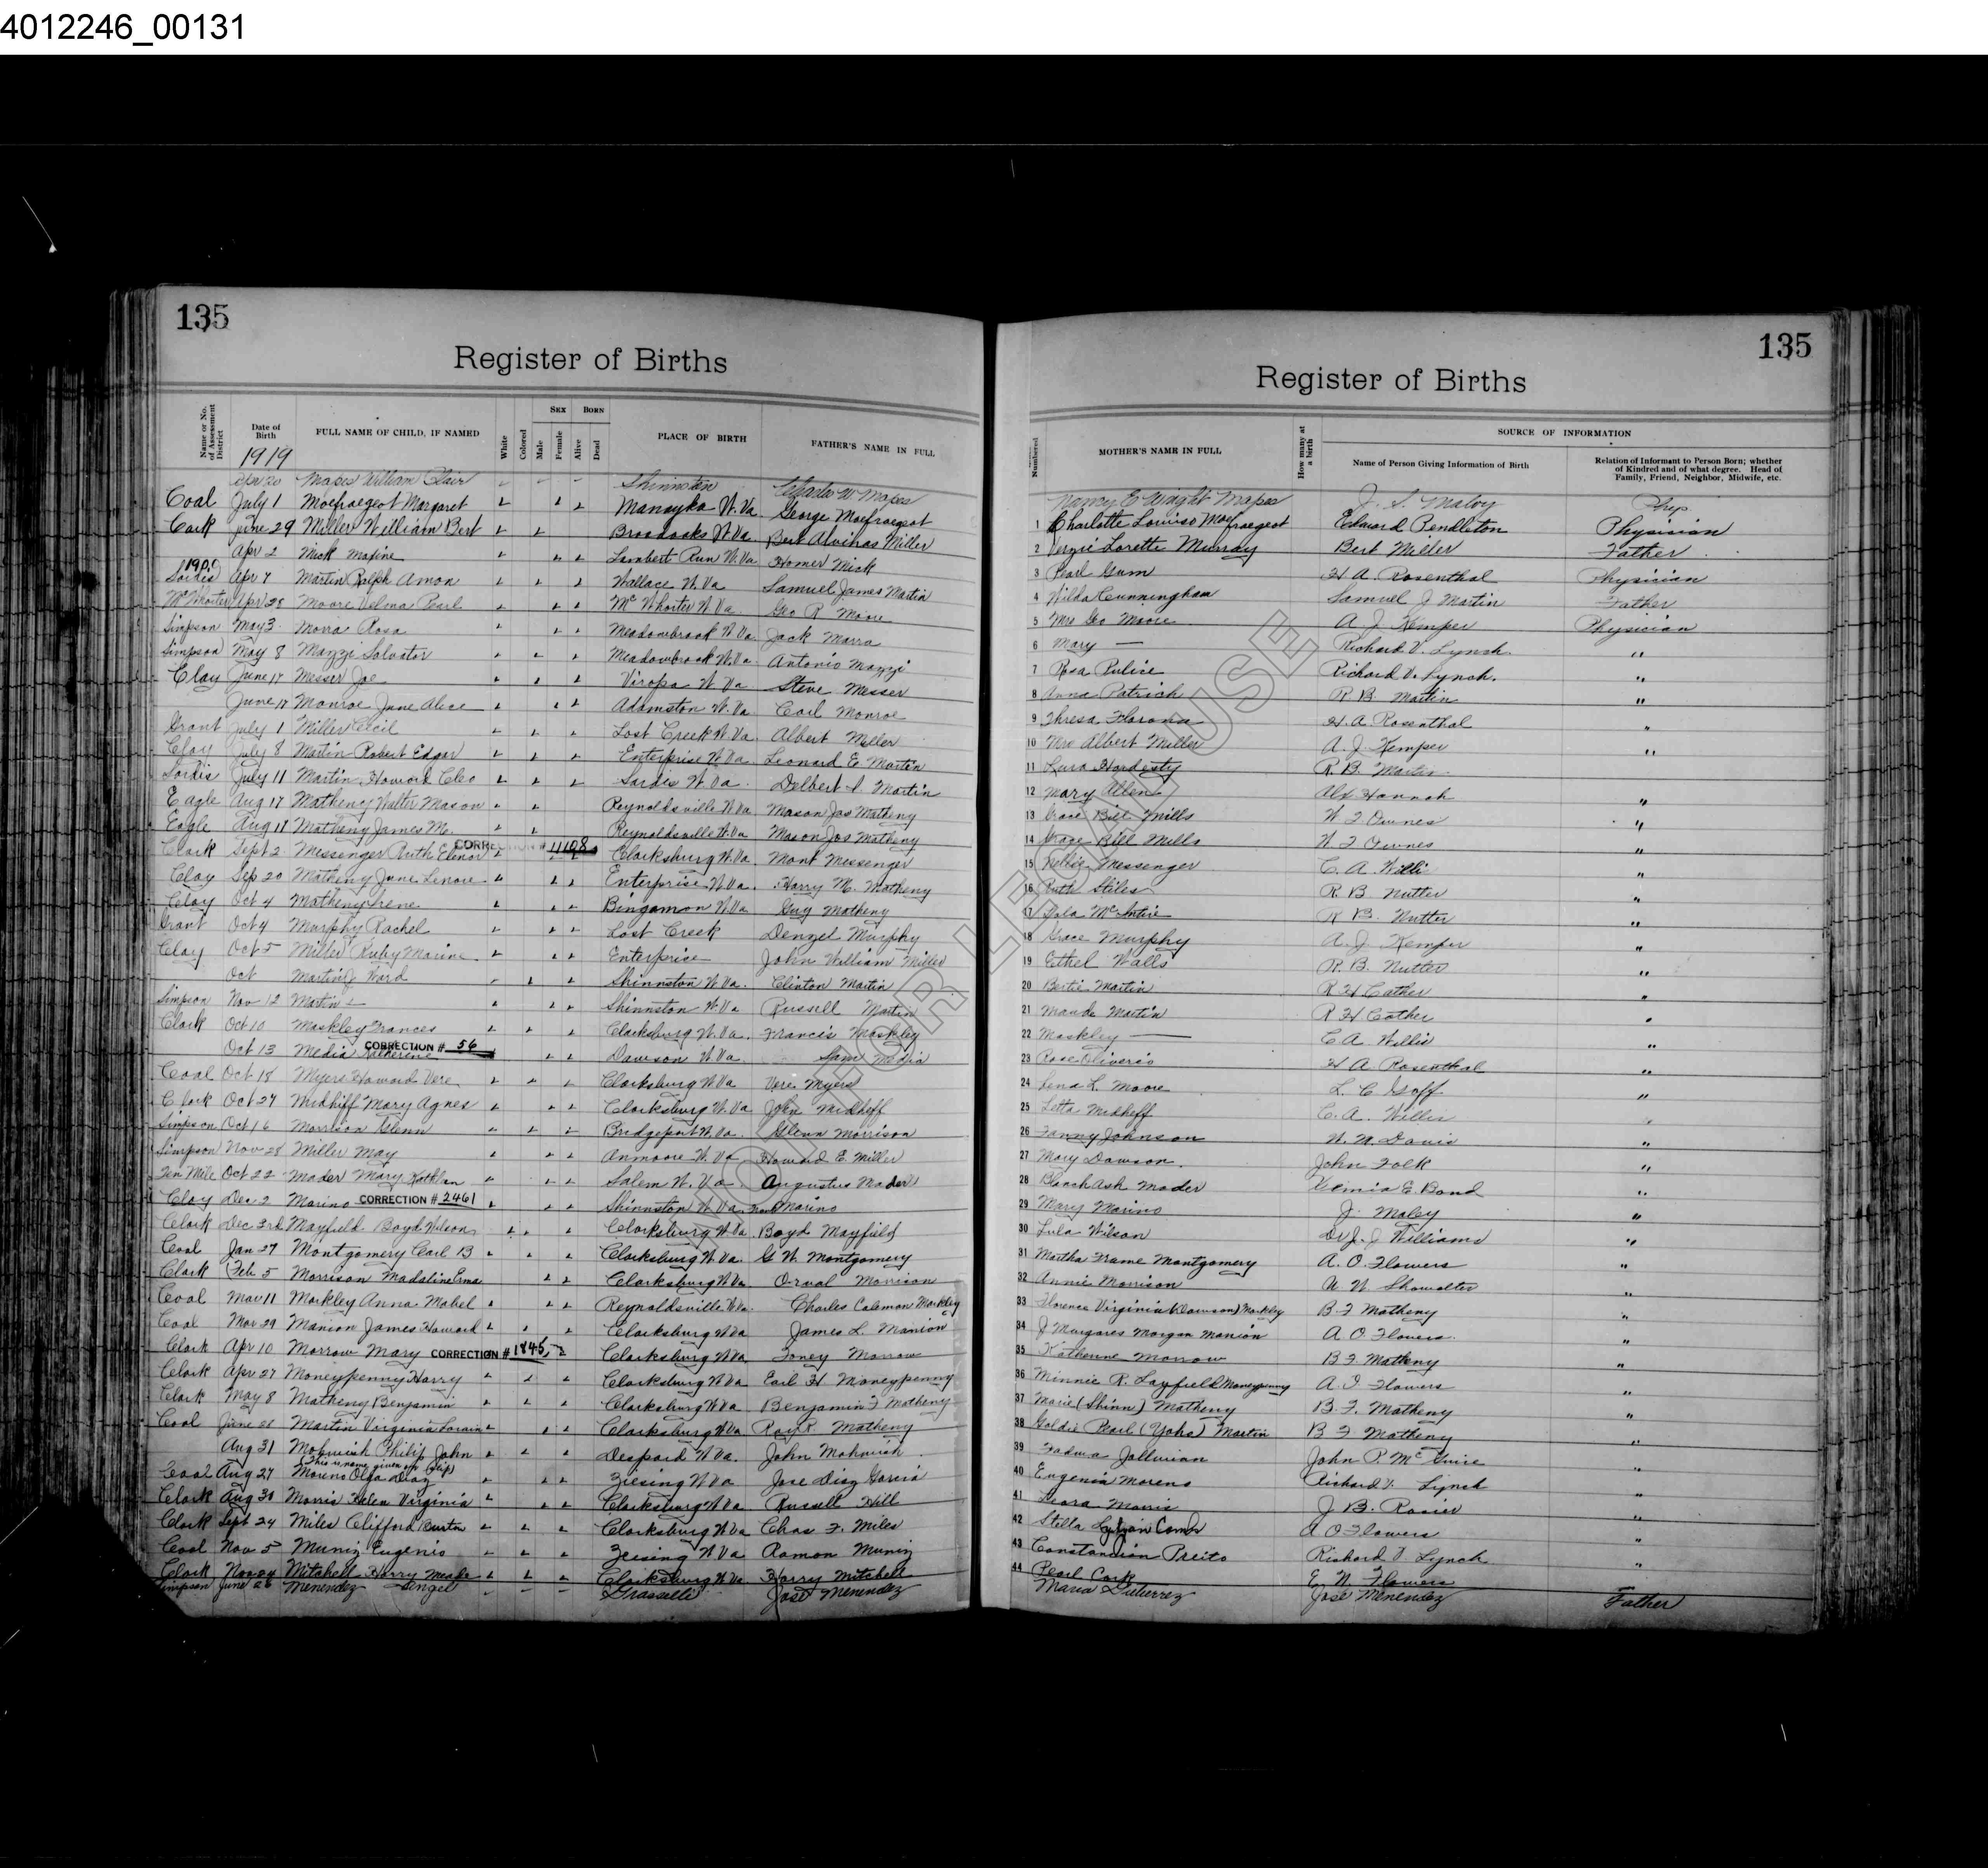 4012246_00131
135
Register of Births
Name or No. of Assessment District
Date of Birth
FULL NAME OF CHILD, IF NAMED
White
Colored
SEX
Male
Female
BORN
Alive
Dead
PLACE OF BIRTH
FATHER'S NAME IN FULL
1919
Apr 20 Mapes William Clair Shinnston Charles W Mapes
Coal July 1 Margaret W.Va. George
Clark June 29 Miller William Bert Broadoaks W Va Bert Alvihas Miller
Apr 2 Mick Maxine Lambert Run W.Va Homer Mick
Sardis Apr 7 Martin Ralph Amon Wallace W.Va Samuel James Martin
McWhorter Apr 28 Moore Velma Pearl McWhorter W Va Geo R Moore
Simpson May 3 Rosa Meadowbrook W Va Jack Marra
Simpson May 8 Mazzi Salvator Meadowbrook W.Va. Antonio Mazzi
Clay June 17 Messer Joe Viropa W Va Steve Messer
June 17 Monroe June Alice Adamston W.Va Monroe
Grant July 1 Miller Cecil Lost Creek W Va. Albert Miller
Clay July 8 Martin Robert Edgar Enterprise W Va Leonard E Martin
Sardis July 11 Martin Howard Cleo Sardis W Va. Delbert Martin
Eagle Aug 17 Matheny Walter Mason Reynoldsville W.Va Mason Jas Matheny
Eagle Aug 17 Matheny James M. Reynoldsville W.Va Mason Jas Matheny
Clark Sept 2 Messenger Ruth Elinor CORRECTION # 11108 Clarksburg W Va Mont Messenger
Clay Sep 20 Matheny June Lenore Enterprise W Va. Harry M. Matheny
Clay Oct 4 Matheny Irene Bingamon W.Va Guy Matheny
Grant Oct 4 Murphy Rachel Lost Creek Denzel Murphy
Clay Oct 5 Miller Ruby Enterprise John William Miller
Oct Martin Ward Shinnston W Va. Clinton Martin
Simpson Nov 12 Martin Shinnston W.Va Russell Martin
Clark Oct 10 Maskley Frances Clarksburg W.Va. Francis Maskley
Oct 13 Media Katherine CORRECTION # 56 Dawson W Va Sam Media
Coal Oct 18 Myers Howard Vere Clarksburg W Va Vere Myers
Clark Oct 27 Mary Agnes Clarksburg W.Va John
Simpson Oct 16 Morrison Glenn Bridgeport W.Va. Glenn Morrison
Simpson Nov 28 Miller May Anmoore W.Va Howard E. Miller
Ten Mile Oct 22 Mader Mary Kathleen Salem W.Va. Augustus Mader
Clay Dec 2 Marino CORRECTION # 2461 Shinnston W.Va. Marino
Clark Dec 3rd Mayfield Boyd Wilson Clarksburg W.Va. Boyd Mayfield
Coal Jan 27 Montgomery Carl B Clarksburg W.Va. G W. Montgomery
Clark Feb 5 Morrison Madaline Erma Clarksburg W Va Orval Morrison
Coal Mar 11 Markley Anna Mabel Reynoldsville W.Va. Charles Coleman Markley
Coal Mar 29 Manion James Howard Clarksburg W Va James L. Manion
Clark Apr 10 Morrow Mary CORRECTION # 1845 Clarksburg W Va. Toney Morrow
Clark Apr 27 Moneypenny Harry Clarksburg W Va Earl H Moneypenny
Clark May 8 Matheny Benjamin Clarksburg W.Va Benjamin F Matheny
Coal June Martin Virginia Clarksburg W Va Ray R. Matheny
Aug 31 Mohwish Philip John Despard W Va. John Mohwish
(This is name given on slip)
Coal Aug 27 Moreno Olga Diaz Zeising W Va Jose Diaz Garcia
Clark Aug 30 Morris Helen Virginia Clarksburg W Va Russell Hill
Clark Sept 24 Miles Clifford Burton Clarksburg W Va Chas F. Miles
Coal Nov 5 Muniz Eugenio Zeising W Va Ramon Muniz
Clark Nov 24 Mitchell Harry Meade Clarksburg W Va Harry Mitchell
Simpson June 26 Menendez Grasselli José Menendez
135
Register of Births
Numbered
MOTHER'S NAME IN FULL
How many at a birth
SOURCE OF INFORMATION
Name of Person Giving Information of Birth
Relation of Informant to Person Born; whether of Kindred and of what degree. Head of Family, Friend, Neighbor, Midwife, etc.
Nancy E Wright Mapes J. S. Maloy Phys
1 Charlotte Louise Edward Pendleton Physician
2 Vergie Lorette Murray Bert Miller Father
3 Pearl Gum H A. Rosenthal Physician
4 Wilda Cunningham Samuel J Martin Father
5 Mrs Geo Moore A J Kemper Physician
6 Mary — Richard V. Lynch "
7 Rosa Pulice Richard V. Lynch. "
8 Anna Patrich R B. Martin "
9 Thresa H. A Rosenthal "
10 Mrs Albert Miller A. J. Kemper "
11 Lura Hardesty R. B. Martin
12 Mary Allen Alx Hannah "
13 Grace Bill Mills W T Ownes "
14 Grace Bill Mills W T Ownes "
15 Nellie Messenger C. A. Willis "
16 Ruth Stiles R. B. Nutter "
17 McIntire R B. Nutter "
18 Grace Murphy A. J. Kemper "
19 Ethel Walls R. B. Nutter "
20 Bertie Martin R H Cather "
21 Maude Martin R H Cather "
22 Maskley — C A Willis "
23 Rose Oliverio H A Rosenthal "
24 Lena L. Moore L. C Goff "
25 Letta C. A. Willis "
26 Fanny Johnson W. M Davis "
27 Mary Dawson. John Folk "
28 Blanch Ash Mader E. Bond "
29 Mary Marino J. Maley "
30 Lula Wilson Dr J. J Williams "
31 Martha Frame Montgomery A. O. Flowers "
32 Annie Morrison Showalter "
33 Florence Virginia (Dawson) Markley B. F Matheny "
34 J Margaret Morgan Manion A O Flowers. "
35 Katherine Morrow B F Matheny "
36 Minnie R. Layfield Moneypenny A. O Flowers "
37 Marie (Shinn) Matheny B. F. Matheny "
38 Goldie Pearl (Yoho) Martin B F Matheny "
39 John P. McGuire "
40 Eugenia Moreno Richard V. Lynch "
41 Leora Morris J B. Rosier "
42 Stella A O Flowers "
43 Preito Richard V Lynch "
44 Pearl Cork E N Flowers "
Maria Gutierrez José Menendez Father
NOT FOR LEGAL USE